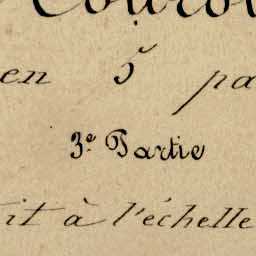 en 5 pa
3e Partie
it à l'échelle